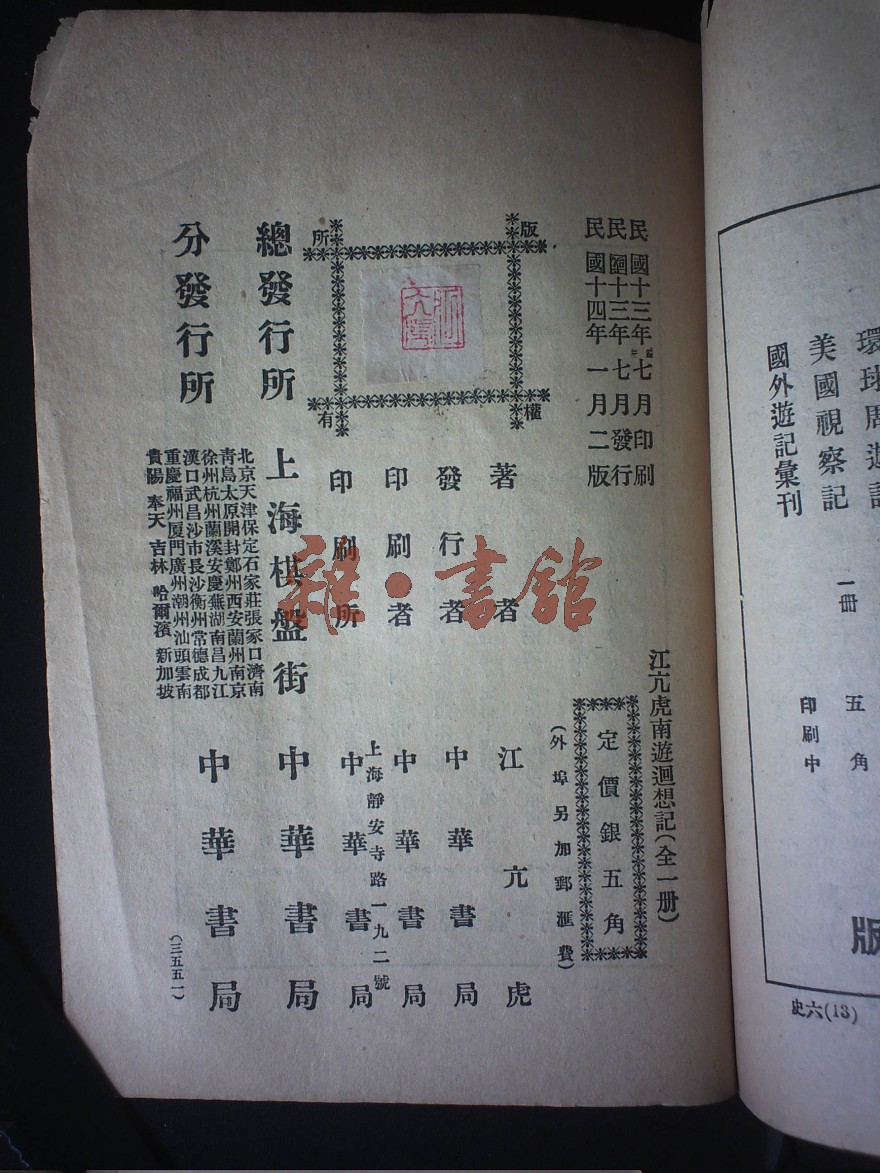 民國十三年七月印刷
民國十三年七月發行
民國十四年一月二版
江亢虎南遊迴想記(全一册)
定價銀五角
(外埠另加郵匯費)
版權所有
著者 江亢虎
發行者 中華書局
印刷者 中華書局
上海靜安寺路一九二號
印刷所 中華書局
總發行所 上海棋盤街 中華書局
北京天津保定石家莊張家口濟南
靑島太原開封鄭州西安蘭州南京
徐州杭州蘭溪安慶蕪湖南昌九江
漢口武昌沙市長沙衡州常德成都
重慶福州厦門廣州潮州汕頭雲南
貴陽 奉天 吉林 哈爾濱 新加坡
分發行所 中華書局
(三五五一)
雜·書館
環球周遊記
美國視察記 一册 五角
國外遊記彙刊 印刷中
版
史六(13)